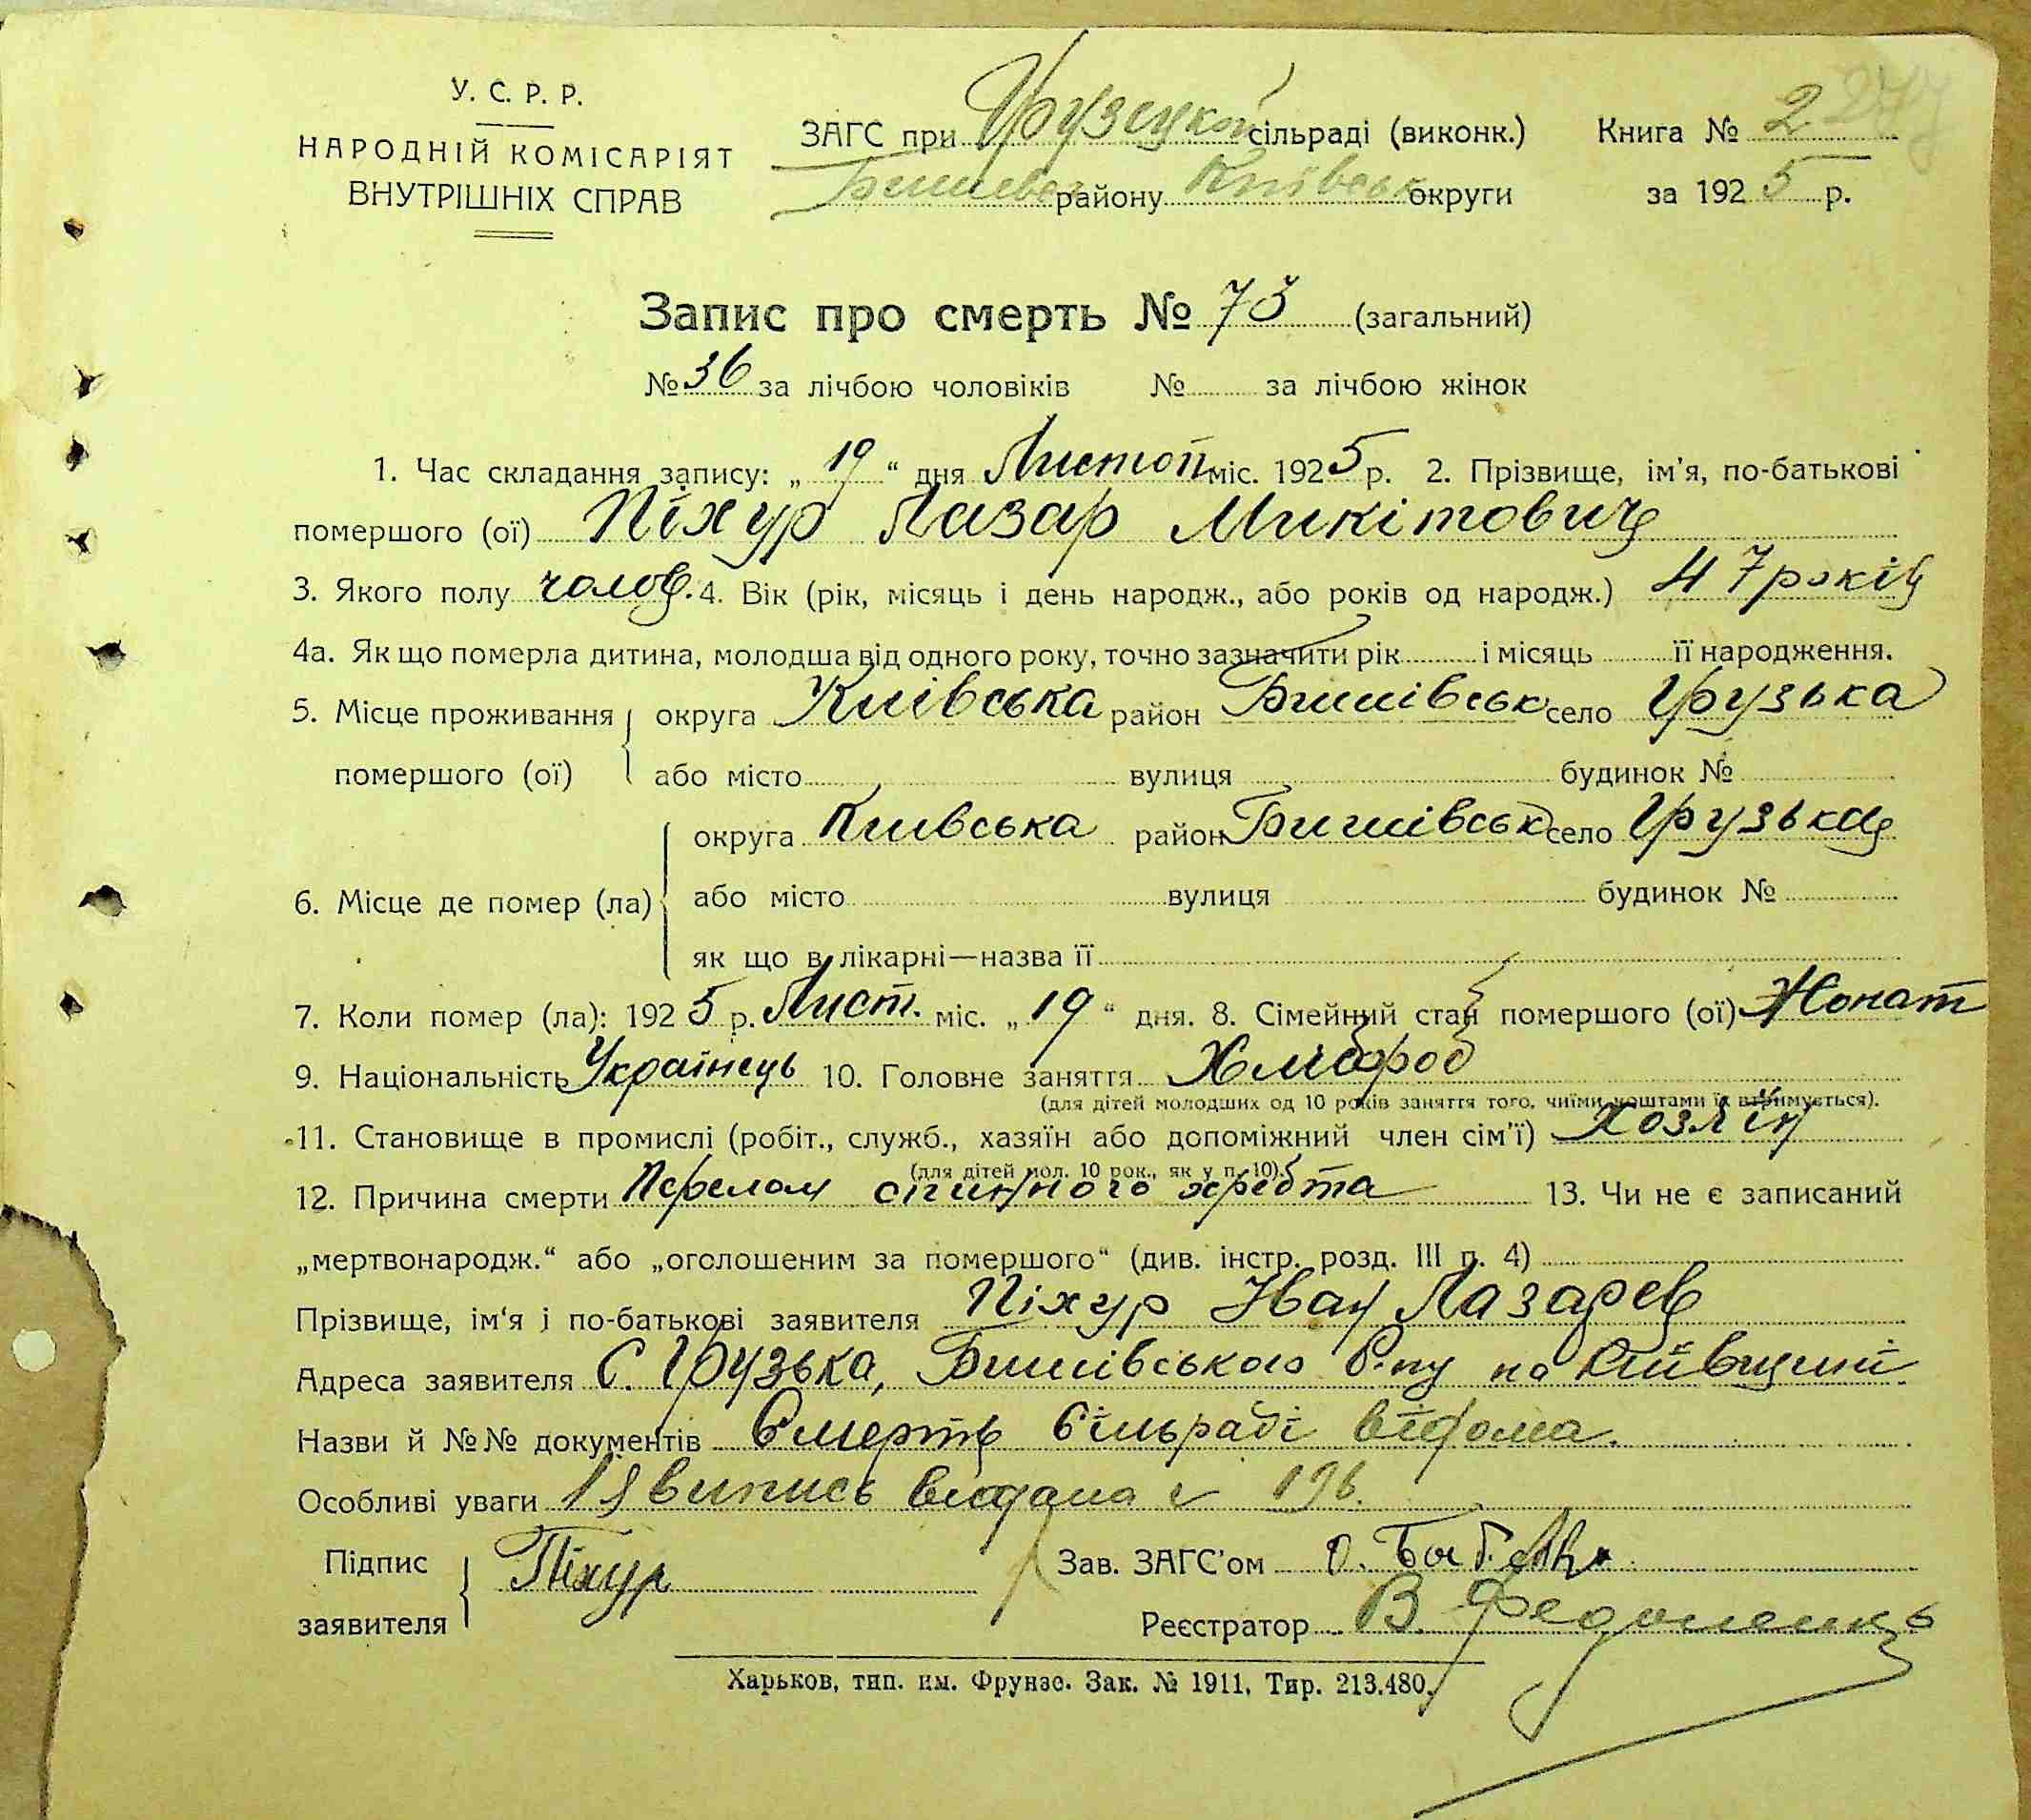 У. С. Р. Р.
НАРОДНІЙ КОМІСАРІЯТ
ВНУТРІШНІХ СПРАВ
ЗАГС при Грузецкой сільраді (виконк.) Книга № 2
району Київськ округи за 1925 р.
Запис про смерть № 73 (загальний)
№ 36 за лічбою чоловіків № за лічбою жінок
1. Час складання запису: „19“ дня Листоп міс. 1925 р. 2. Прізвище, ім'я, по-батькові
помершого (ої) Піхур Лазар Микітович
3. Якого полу чолов. 4. Вік (рік, місяць і день народж., або років од народж.) 47 років
4а. Як що померла дитина, молодша від одного року, точно зазначити рік і місяць її народження.
5. Місце проживання округа Київська район Бишівськ село Грузька
помершого (ої) або місто вулиця будинок №
округа Київська район Бишівськ село Грузька
6. Місце де помер (ла) або місто вулиця будинок №
як що в лікарні—назва її
7. Коли помер (ла): 1925 р. Лист. міс. „19“ дня. 8. Сімейний стан помершого (ої) Жонат
9. Національність Українець 10. Головне заняття Хлібороб
(для дітей молодших од 10 років заняття того, чиїми коштами їх втримується).
11. Становище в промислі (робіт., служб., хазяїн або допоміжний член сім'ї) Хозяїн
(для дітей мол. 10 рок., як у п. 10).
12. Причина смерти Перелом спинного хребта 13. Чи не є записаний
„мертвонародж.“ або „оголошеним за помершого“ (див. інстр. розд. III п. 4)
Прізвище, ім'я і по-батькові заявителя Піхур Іван Лазарев
Адреса заявителя С. Грузька, Бишівського р-ну на Київщині
Назви й №№ документів Смерть сільраді відома.
Особливі уваги випись видана
Підпис Піхур Зав. ЗАГС'ом
заявителя Реєстратор В. Федоненко
Харьков, тип. им. Фрунзе. Зак. № 1911. Тир. 213.480.